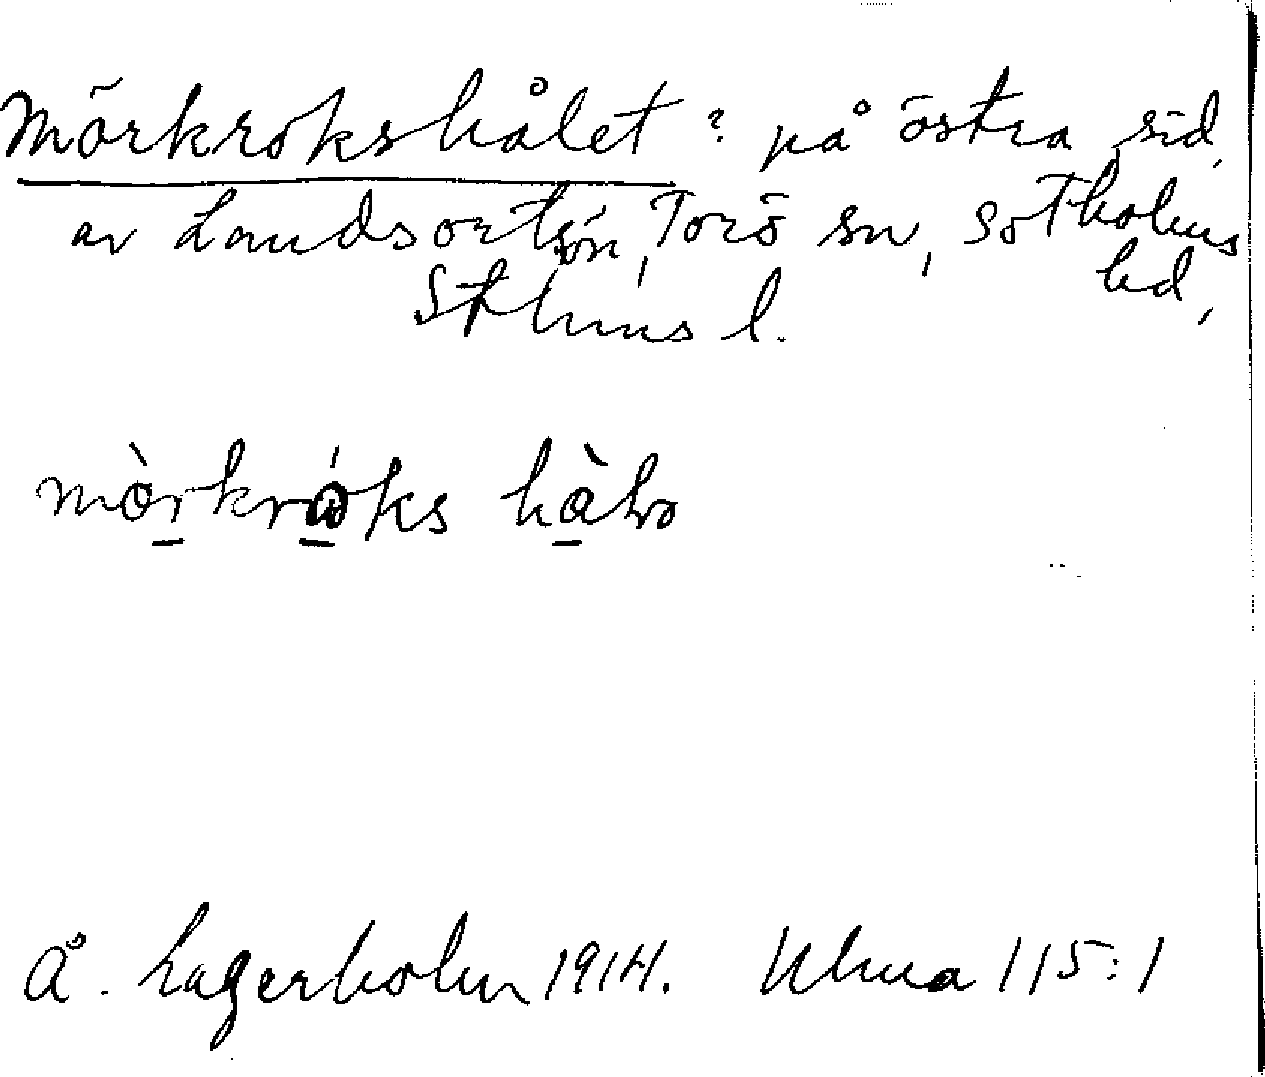 Mörkrokshålet ? på östra sid.
av Landsortsön, Torö sn, Sotholms
hd,
Sthms l.
mòrkróks hàlɷ
Å. Lagerholm 1914. Ulma 115:1